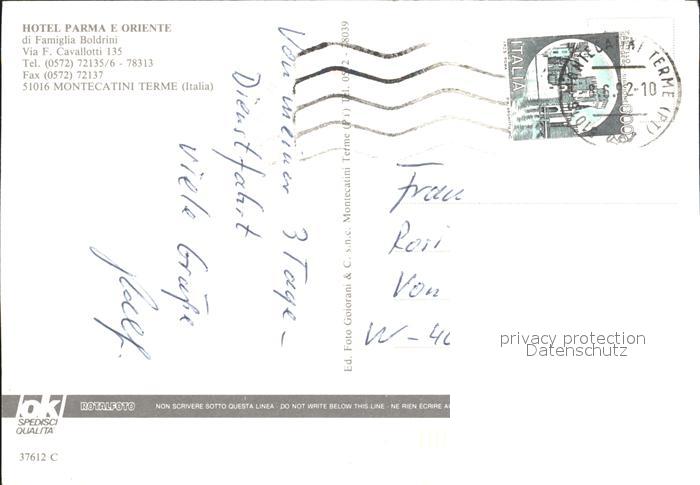 HOTEL PARMA E ORIENTE
di Famiglia Boldrini
Via F. Cavallotti 135
Tel. (0572) 72135/6 - 78313
Fax (0572) 72137
51016 MONTECATINI TERME (Italia)
Von meiner 3 Tage-
Dienstfahrt
viele Grüße
Ralf.
Ed. Foto Goiorani & C. s.n.c. Montecatini Terme (Pt) Tel. 0572 - 78039
ITALIA
MONTECATINI TERME (PT)
8.6.92-10
Frau
Rosi
Von
W-40
privacy protection
Datenschutz
ok
SPEDISCI
QUALITA'
ROTALFOTO
NON SCRIVERE SOTTO QUESTA LINEA - DO NOT WRITE BELOW THIS LINE - NE RIEN ÉCRIRE A
37612 C